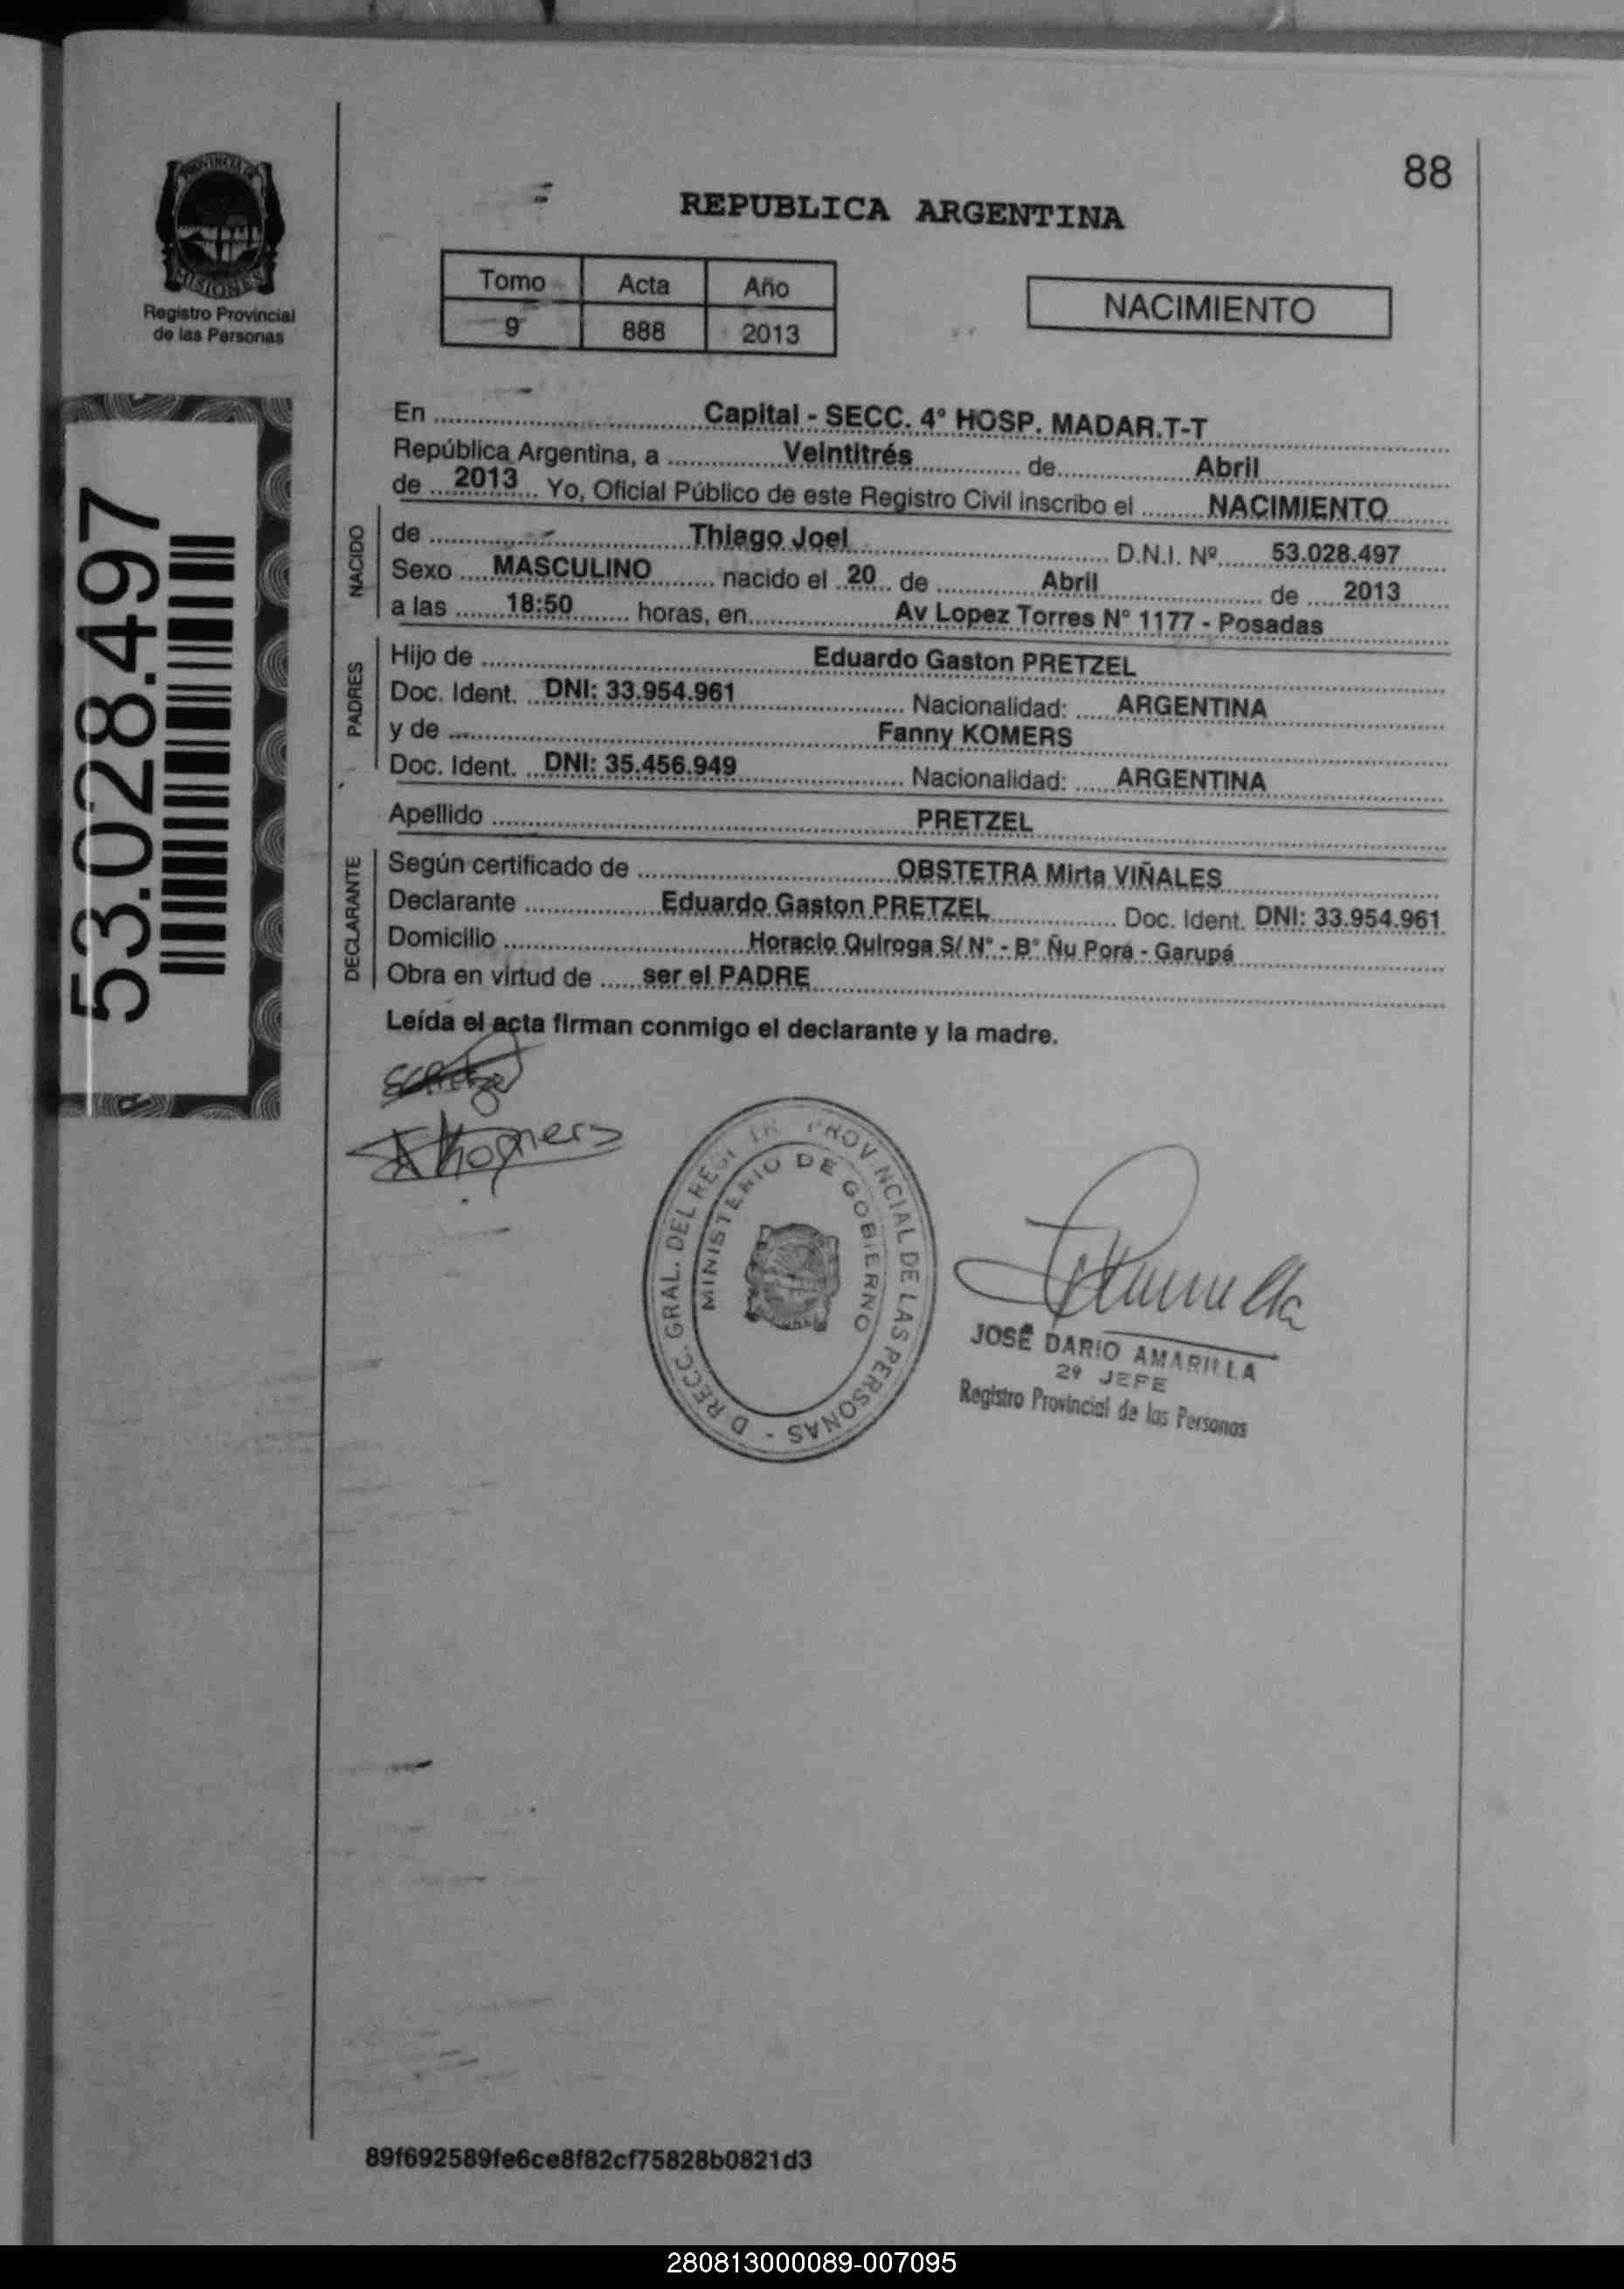 88
PROVINCIA DE
MISIONES
Registro Provincial
de las Personas
REPUBLICA ARGENTINA
Tomo Acta Año
9 888 2013
NACIMIENTO
53.028.497
En Capital - SECC. 4° HOSP. MADAR.T-T
República Argentina, a Veintitrés de Abril
de 2013 Yo, Oficial Público de este Registro Civil inscribo el NACIMIENTO
NACIDO
de Thiago Joel D.N.I. Nº 53.028.497
Sexo MASCULINO nacido el 20 de Abril de 2013
a las 18:50 horas, en Av Lopez Torres N° 1177 - Posadas
PADRES
Hijo de Eduardo Gaston PRETZEL
Doc. Ident. DNI: 33.954.961 Nacionalidad: ARGENTINA
y de Fanny KOMERS
Doc. Ident. DNI: 35.456.949 Nacionalidad: ARGENTINA
Apellido PRETZEL
DECLARANTE
Según certificado de OBSTETRA Mirta VIÑALES
Declarante Eduardo Gaston PRETZEL Doc. Ident. DNI: 33.954.961
Domicilio Horacio Quiroga S/ N° - B° Ñu Porá - Garupá
Obra en virtud de ser el PADRE
Leída el acta firman conmigo el declarante y la madre.
Komers
MINISTERIO DE GOBIERNO
GRAL. DEL PROVINCIAL DE LAS PERSONAS -
JOSÉ DARIO AMARILLA
2º JEFE
Registro Provincial de las Personas
89f692589fe6ce8f82cf75828b0821d3
280813000089-007095